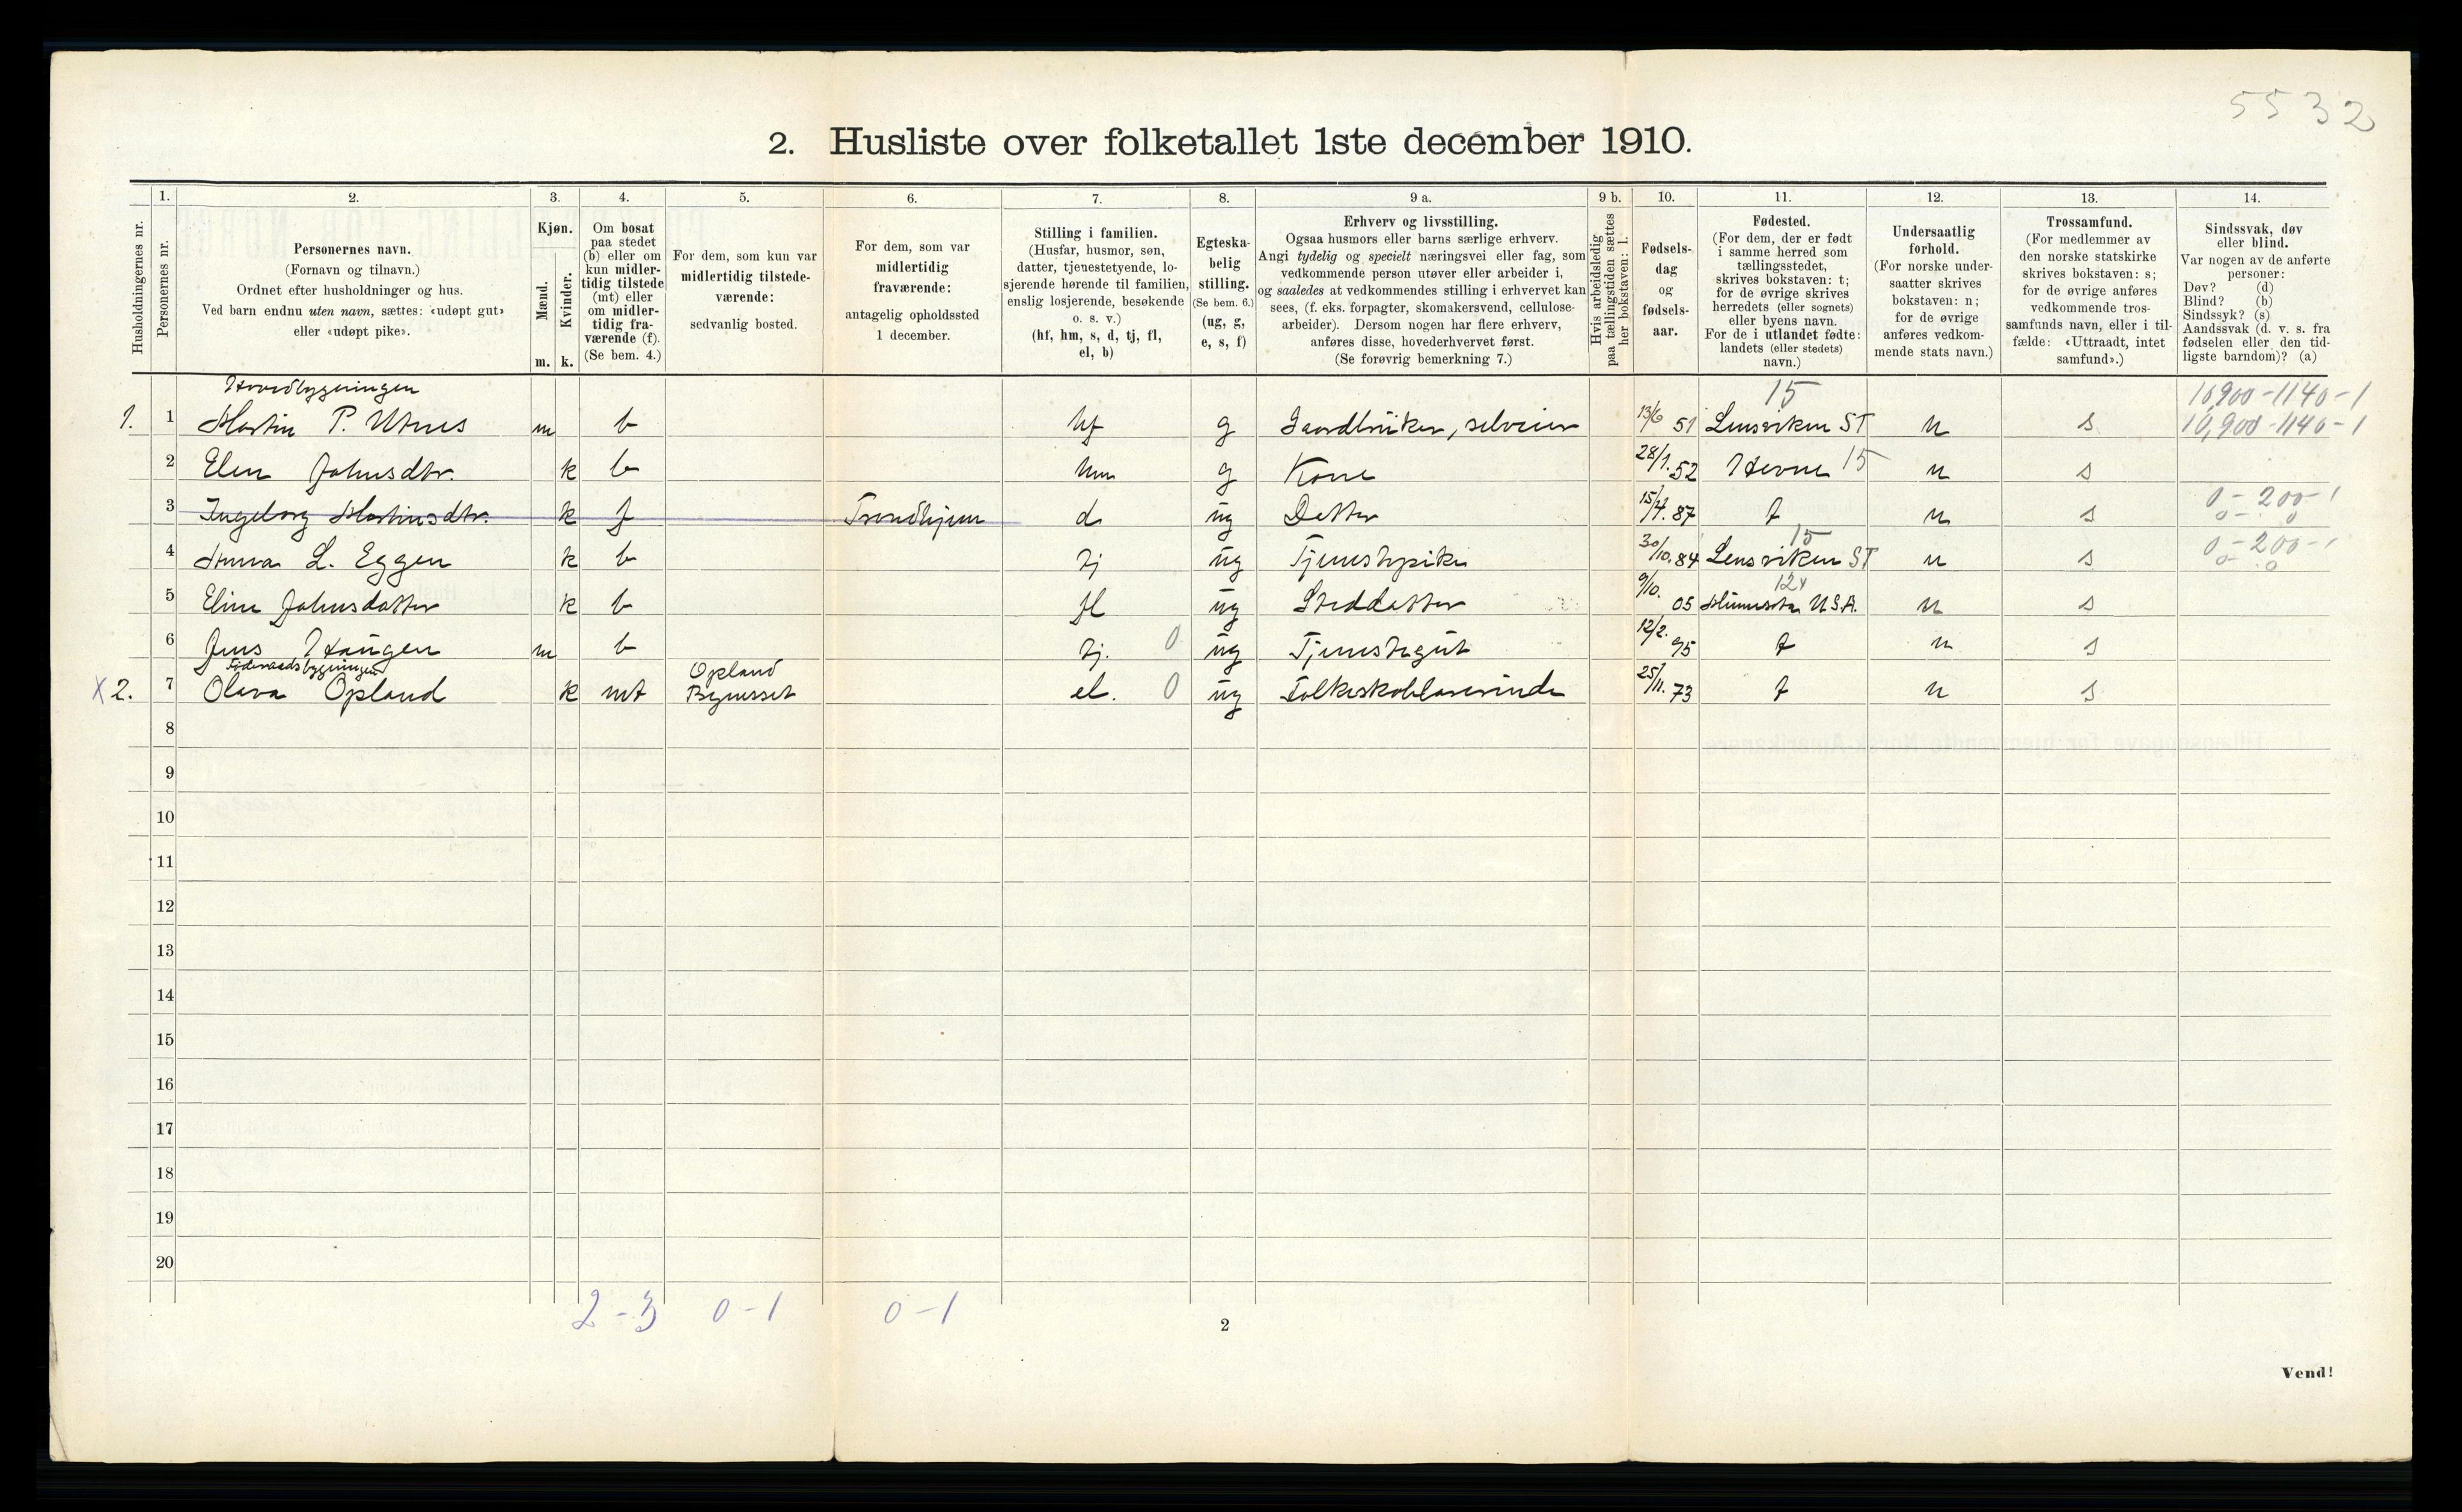 5532
2. Husliste over folketallet 1ste december 1910.
Husholdningernes nr.
1.
Personernes nr.
2.
Personernes navn.
(Fornavn og tilnavn.)
Ordnet efter husholdninger og hus.
Ved barn endnu uten navn, sættes: «udøpt gut»
eller «udøpt pike».
3.
Kjøn.
Mænd.
Kvinder.
m. k.
4.
Om bosat
paa stedet
(b) eller om
kun midler-
tidig tilstede
(mt) eller
om midler-
tidig fra-
værende (f).
(Se bem. 4.)
5.
For dem, som kun var
midlertidig tilstede-
værende:
sedvanlig bosted.
6.
For dem, som var
midlertidig
fraværende:
antagelig opholdssted
1 december.
7.
Stilling i familien.
(Husfar, husmor, søn,
datter, tjenestetyende, lo-
sjerende hørende til familien,
enslig losjerende, besøkende
o. s. v.)
(hf, hm, s, d, tj, fl,
el, b)
8.
Egteska-
belig
stilling.
(Se bem. 6.)
(ug, g,
e, s, f)
9 a.
Erhverv og livsstilling.
Ogsaa husmors eller barns særlige erhverv.
Angi tydelig og specielt næringsvei eller fag, som
vedkommende person utøver eller arbeider i,
og saaledes at vedkommendes stilling i erhvervet kan
sees, (f. eks. forpagter, skomakersvend, cellulose-
arbeider). Dersom nogen har flere erhverv,
anføres disse, hovederhvervet først.
(Se forøvrig bemerkning 7.)
9 b.
Hvis arbeidsledig
paa tællingstiden sættes
her bokstaven: l.
10.
Fødsels-
dag
og
fødsels-
aar.
11.
Fødested.
(For dem, der er født
i samme herred som
tællingsstedet,
skrives bokstaven: t;
for de øvrige skrives
herredets (eller sognets)
eller byens navn.
For de i utlandet fødte:
landets (eller stedets)
navn.)
12.
Undersaatlig
forhold.
(For norske under-
saatter skrives
bokstaven: n;
for de øvrige
anføres vedkom-
mende stats navn.)
13.
Trossamfund.
(For medlemmer av
den norske statskirke
skrives bokstaven: s;
for de øvrige anføres
vedkommende tros-
samfunds navn, eller i til-
fælde: «Uttraadt, intet
samfund».)
14.
Sindssvak, døv
eller blind.
Var nogen av de anførte
personer:
Døv? (d)
Blind? (b)
Sindssyk? (s)
Aandssvak (d. v. s. fra
fødselen eller den tid-
ligste barndom)? (a)
Hovedbygningen 15 10,900-1140-1
1. 1 Martin P. Utnes m b hf g Gaardbruker, selveier 13/6 51 Lensviken ST n s 10,900-1140-1
2 Elen Johnsdtr. k b hm g Kone 28/1. 52 Hevne 15 n s
3 Ingeborg Martinsdtr. k f Trondhjem d ug Datter 15/4. 87 t n s 0-200-1
0- 0
4 Anna L. Eggen k b tj ug Tjenestepike 30/10. 84 15 Lensviken ST n s 0-200-1
0- 0
5 Eline Johnsdatter k b fl ug Steddatter 9/10. 05 12x Minnesota U.S.A. n s
6 Jens Haugen m b tj. 0 ug Tjenestegut 12/2. 95 t n s
Føderaadsbygningen Opland
X 2. 7 Olava Opland k mt Bynesset el. 0 ug Folkeskolelærerinde 25/11. 73 t n s
8
9
10
11
12
13
14
15
16
17
18
19
20
2-3 0-1 0-1
2
Vend!